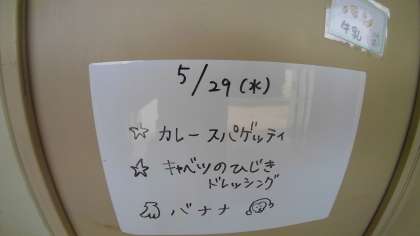 牛乳
5/29(水)
☆ カレースパゲッティ
☆ キャベツのひじき
ドレッシング
バナナ